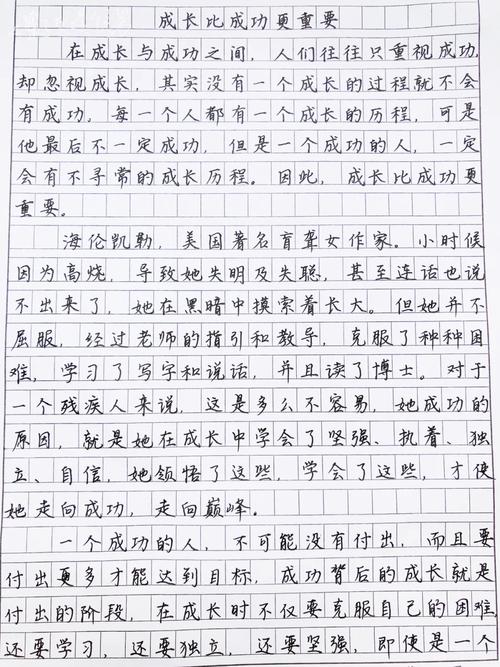 成长比成功更重要
在成长与成功之间，人们往往只重视成功，
却忽视成长，其实没有一个成长的过程就不会
有成功，每一个人都有一个成长的历程，可是
他最后不一定成功，但是一个成功的人，一定
会有不寻常的成长历程。因此，成长比成功更
重要。
海伦凯勒，美国著名盲聋女作家。小时候
因为高烧，导致她失明及失聪，甚至连话也说
不出来了，她在黑暗中摸索着长大。但她并不
屈服，经过老师的指引和教导，克服了种种困
难，学习了写字和说话，并且读了博士。对于
一个残疾人来说，这是多么不容易，她成功的
原因，就是她在成长中学会了坚强、执着、独
立、自信，她领悟了这些，学会了这些，才使
她走向成功，走向巅峰。
一个成功的人，不可能没有付出，而且要
付出更多才能达到目标，成功背后的成长就是
付出的阶段，在成长时不仅要克服自己的困难，
还要学习，还要独立，还要坚强，即使是一个